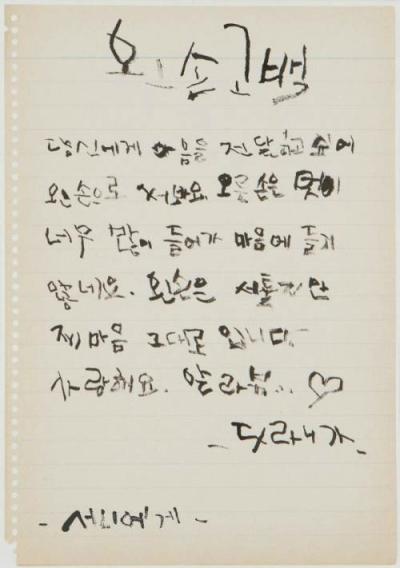 왼손고백
당신에게 마음을 전달하고 싶어
왼손으로 써봐요 오른손은 멋이
너무 많이 들어가 마음에 들지
않네요. 왼손은 서툴지만
제마음 그대로 입니다
사랑해요. 알라뷰.. ♡
- 닷라니가 -
- 서니에게 -